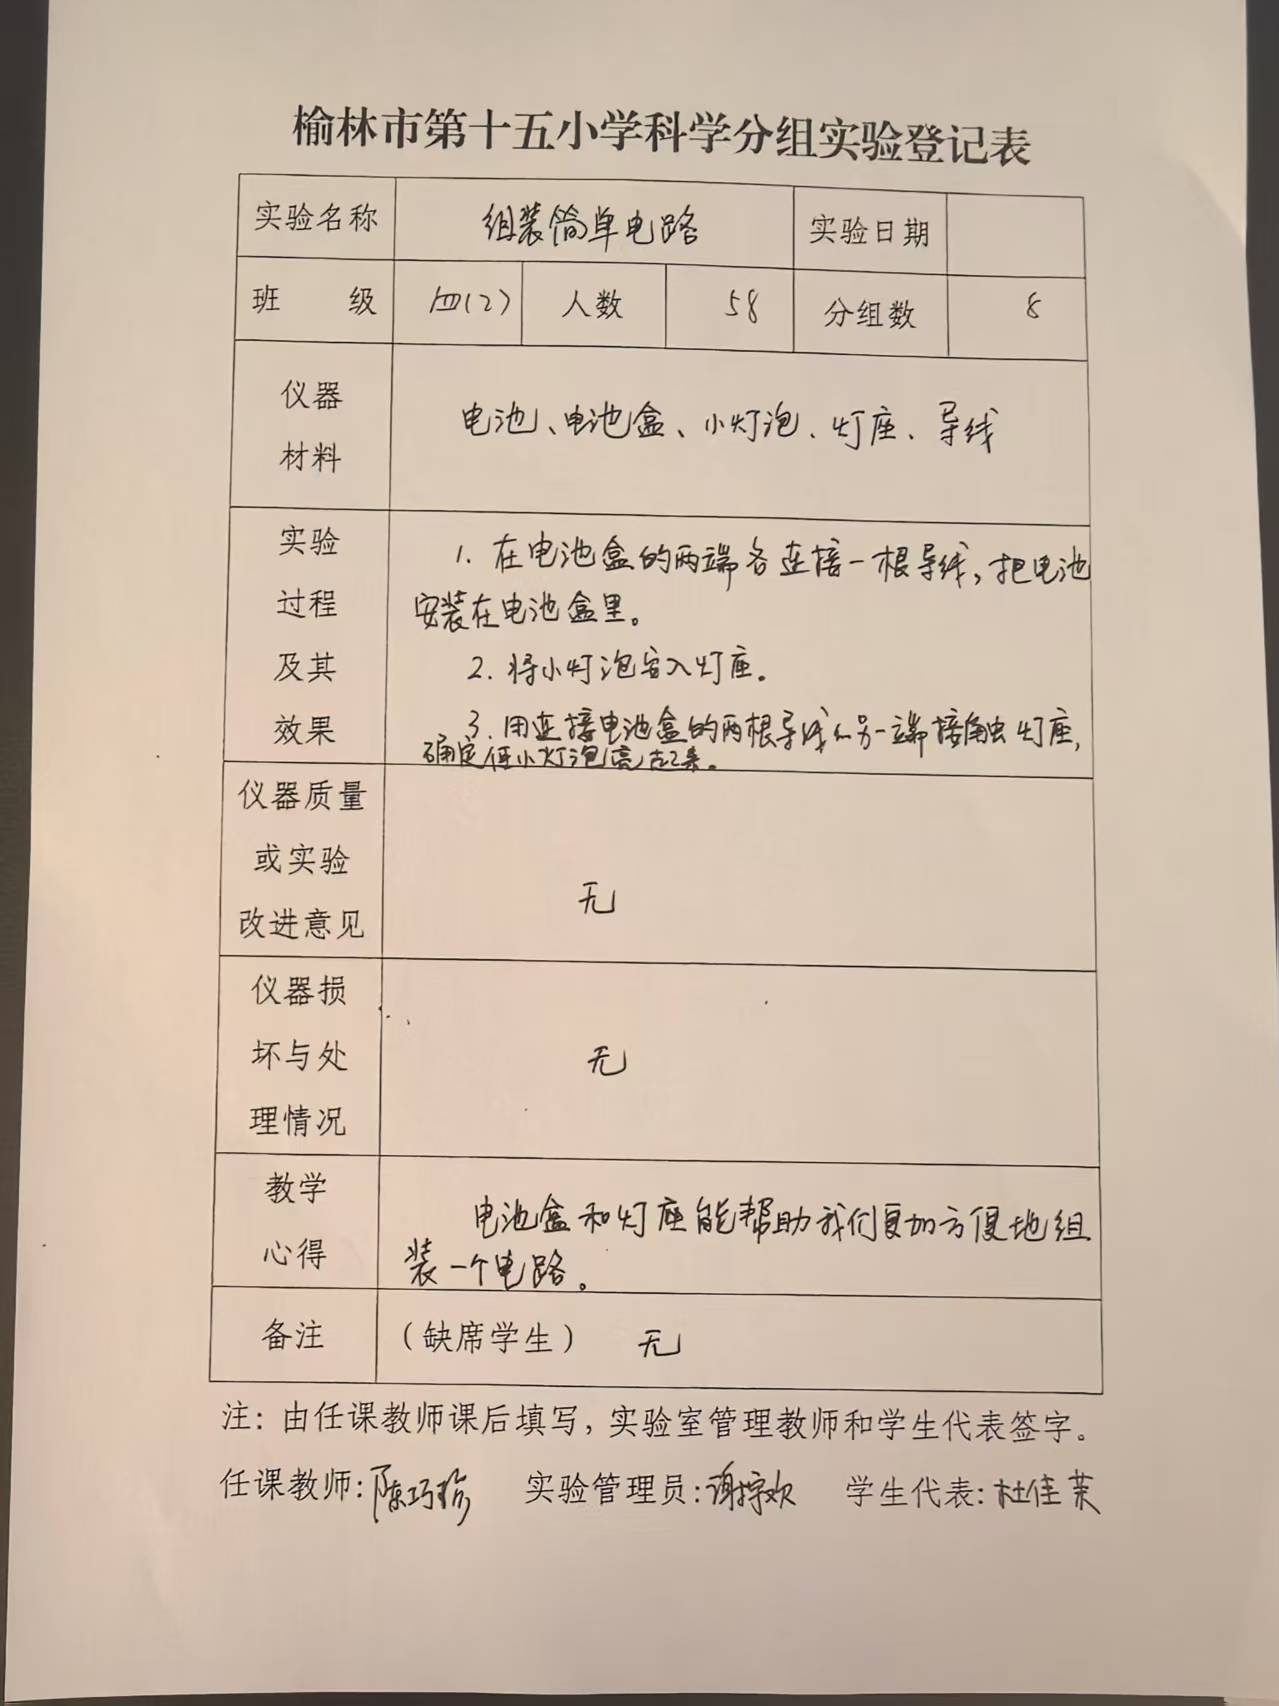 榆林市第十五小学科学分组实验登记表
实验名称 组装简单电路 实验日期
班 级 四(2) 人数 58 分组数 8
仪器
材料
电池、电池盒、小灯泡、灯座、导线
实验
过程
及其
效果
1. 在电池盒的两端各连接一根导线,把电池
安装在电池盒里。
2. 将小灯泡安入灯座。
3. 用连接电池盒的两根导线的另一端接触灯座,
确定使小灯泡亮起来。
仪器质量
或实验
改进意见
无
仪器损
坏与处
理情况
无
教学
心得
电池盒和灯座能帮助我们更加方便地组
装一个电路。
备注 (缺席学生) 无
注:由任课教师课后填写,实验室管理教师和学生代表签字。
任课教师:陈巧珍 实验管理员:谢 欢 学生代表:杜佳